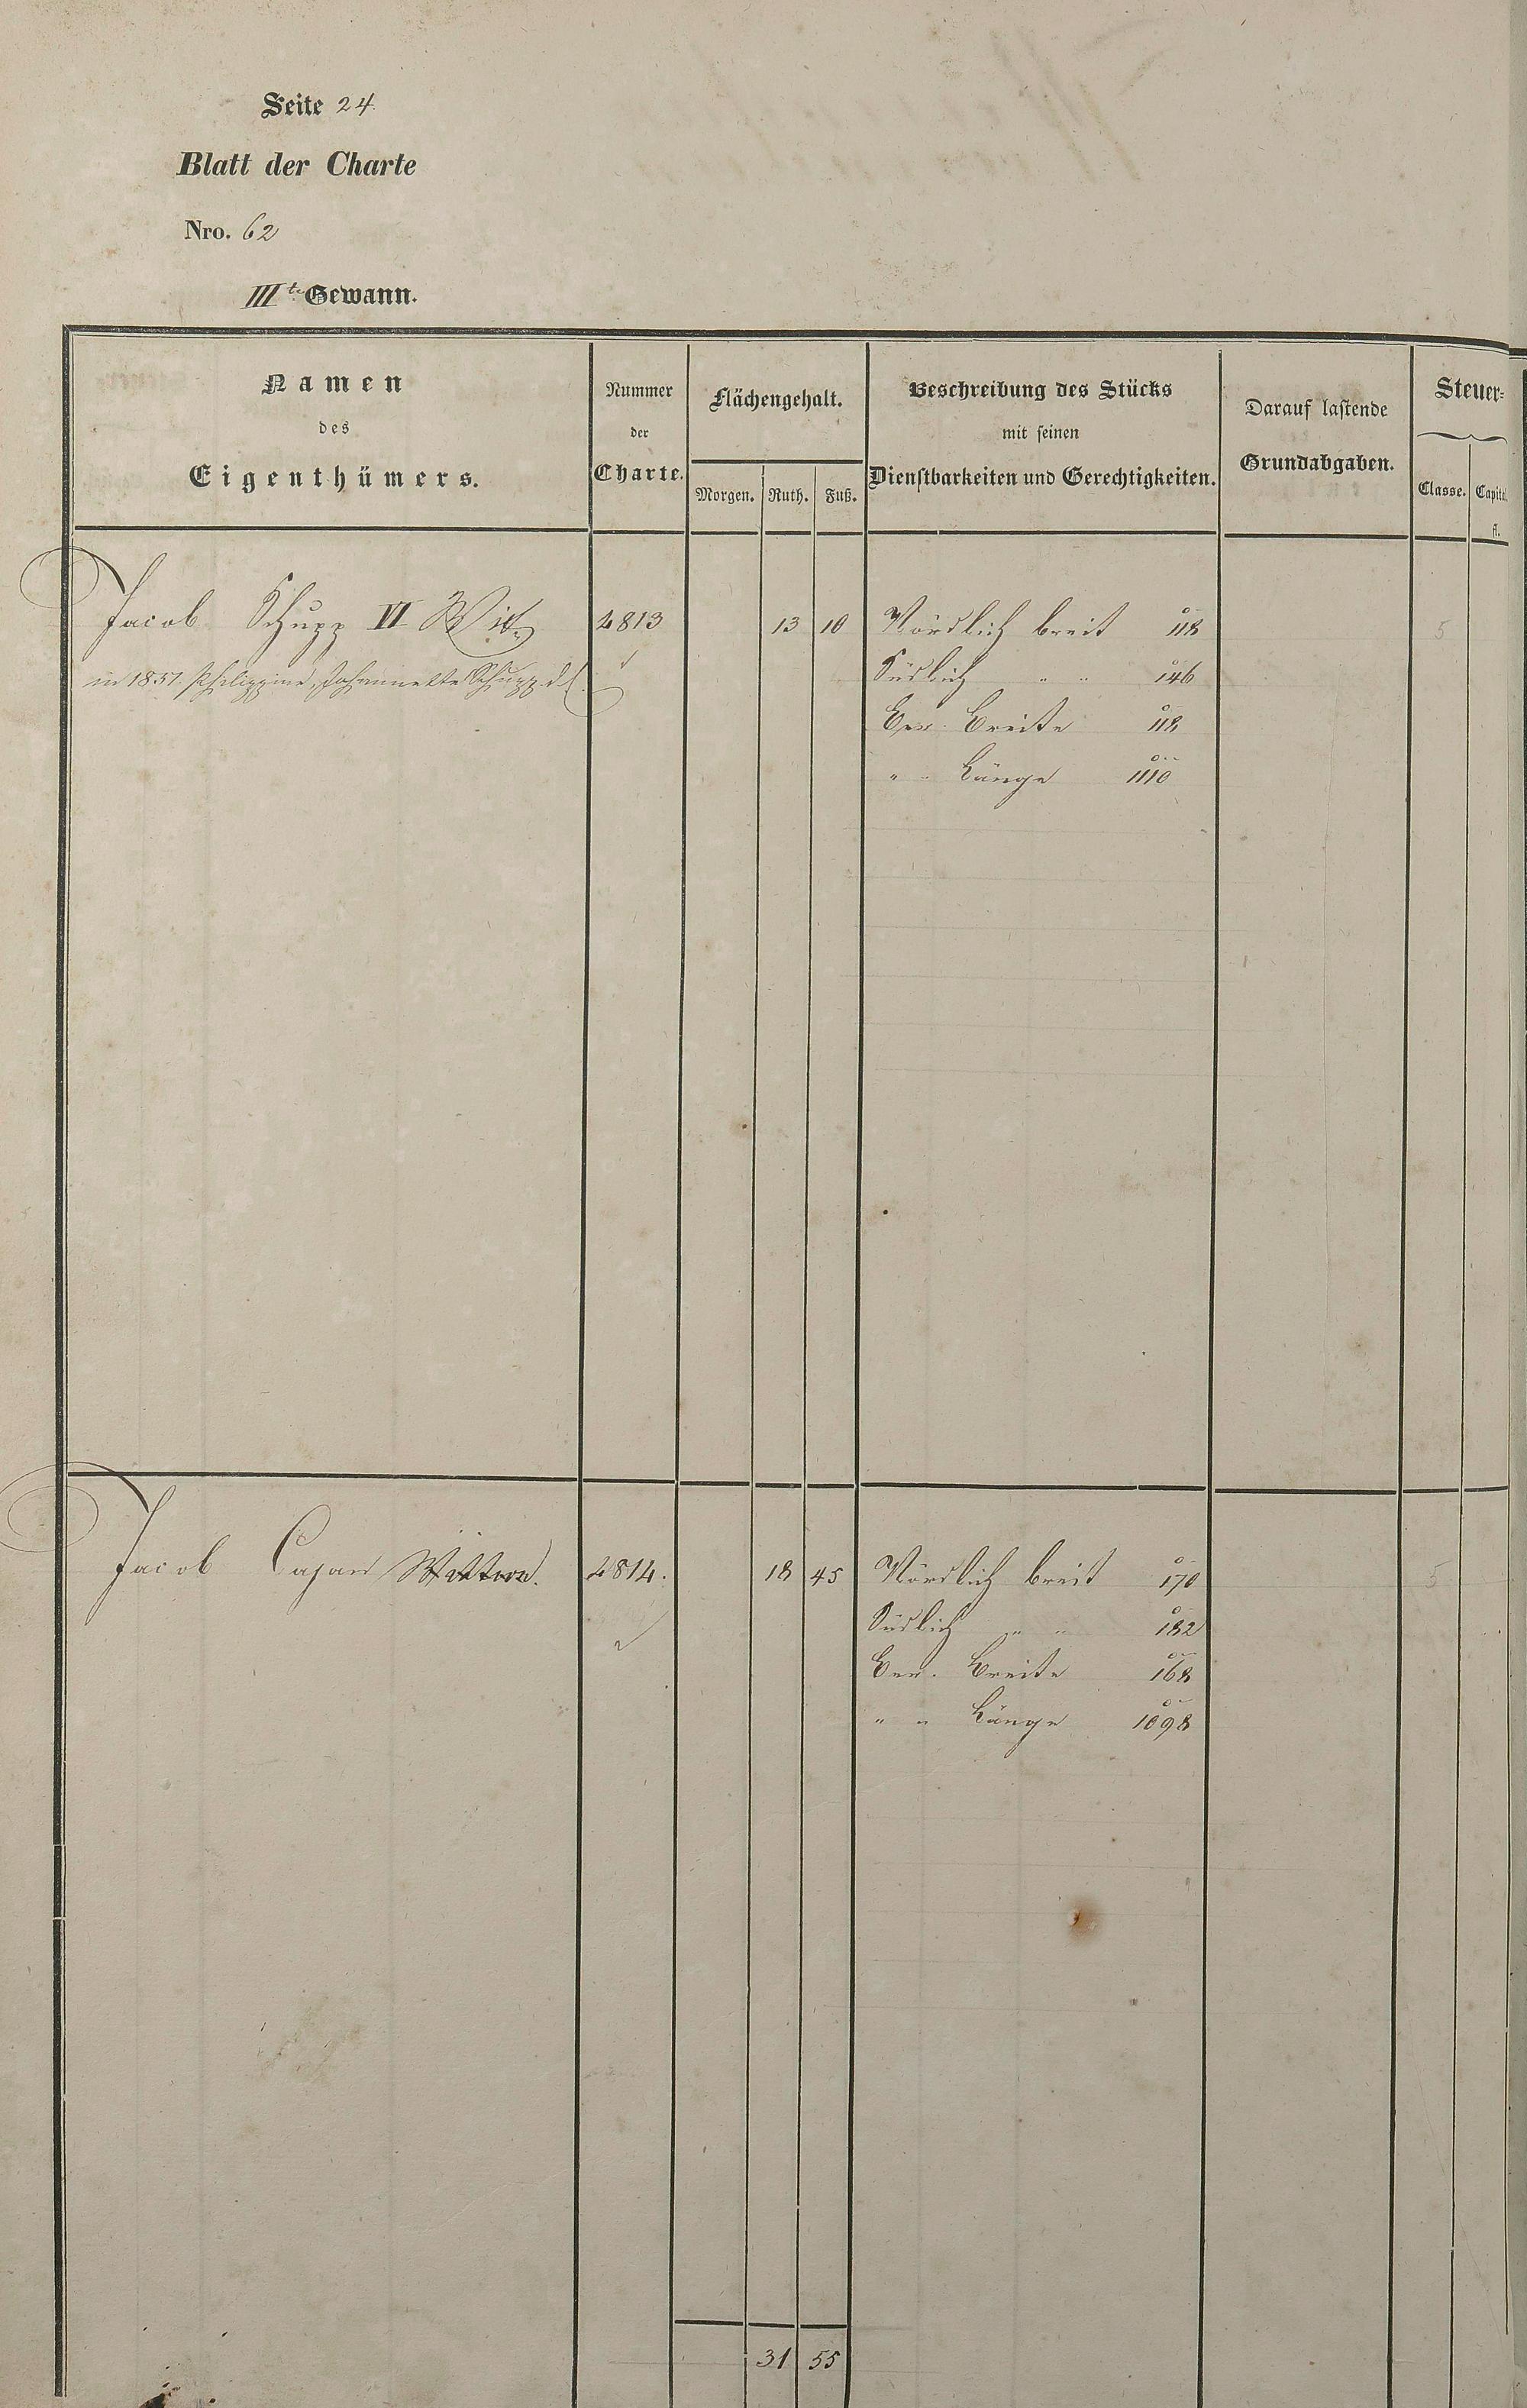 Seite 24
Blatt der Charte
Nro. 62
III te Gewann.
Namen des Eigenthümers.
Nummer der Charte.
Flächengehalt.
Morgen. Ruth. Fuß.
Beschreibung des Stücks mit seinen Dienstbarkeiten und Gerechtigkeiten.
Darauf lastende Grundabgaben.
Steuer-
Classe. Capital
fl.
Jacob Schupp VI Witw. 4813 13 10 Nördlich breit 118 5
in 1851 Philippine, Johannette Schupp
Südlich " " 146
Ber. Breite 118
" " Länge 1110
Jacob Cajan Wittwe. 4814. 18 45 Nördlich breit 170 5
Südlich " " 182
Ber. Breite 168
" " Länge 1098
31 55